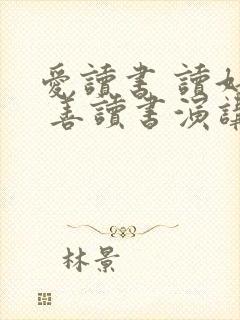 愛讀書 讀好
善讀書演講
林景